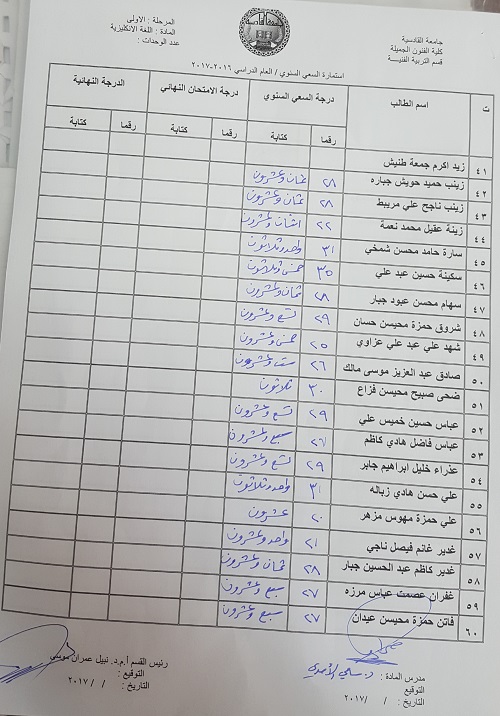 جامعة القادسية
كلية الفنون الجميلة
قسم التربية الفنية
المرحلة : الاولى
المادة : اللغة الانكليزية
عدد الوحدات :
استمارة السعي السنوي / العام الدراسي ٢٠١٦-٢٠١٧
ت اسم الطالب درجة السعي السنوي درجة الامتحان النهائي الدرجة النهائية
رقما كتابة رقما كتابة رقما كتابة
٤١ زيد اكرم جمعة طنيش
٤٢ زينب حميد حويش جباره ٢٨ ثمان وعشرون
٤٣ زينب ناجح علي مريبط ٢٨ ثمان وعشرون
٤٤ زينة عقيل محمد نعمة ٢٢ اثنان وعشرون
٤٥ سارة حامد محسن شمخي ٣١ واحد وثلاثون
٤٦ سكينة حسين عبد علي ٣٥ خمس وثلاثون
٤٧ سهام محسن عبود جبار ٢٨ ثمان وعشرون
٤٨ شروق حمزة محيسن حسان ٢٩ تسع وعشرون
٤٩ شهد علي عبد علي عزاوي ٢٥ خمس وعشرون
٥٠ صادق عبد العزيز موسى مالك ٢٦ ست وعشرون
٥١ ضحى صبيح محيسن فزاع ٣٠ ثلاثون
٥٢ عباس حسين خميس علي ٢٩ تسع وعشرون
٥٣ عباس فاضل هادي كاظم ٢٧ سبع وعشرون
٥٤ عذراء خليل ابراهيم جابر ٢٩ تسع وعشرون
٥٥ علي حسن هادي زباله ٣١ واحد وثلاثون
٥٦ علي حمزة مهوس مزهر ٢٠ عشرون
٥٧ غدير غانم فيصل ناجي ٢١ واحد وعشرون
٥٨ غدير كاظم عبد الحسين جبار ٢٨ ثمان وعشرون
٥٩ غفران عصمت عباس مرزه ٢٧ سبع وعشرون
٦٠ فاتن حمزة محيسن عيدان ٢٧ سبع وعشرون
مدرس المادة :
التوقيع
التاريخ : / / ٢٠١٧
رئيس القسم أ.م.د. نبيل عمران موسى
التوقيع :
التاريخ : / / ٢٠١٧